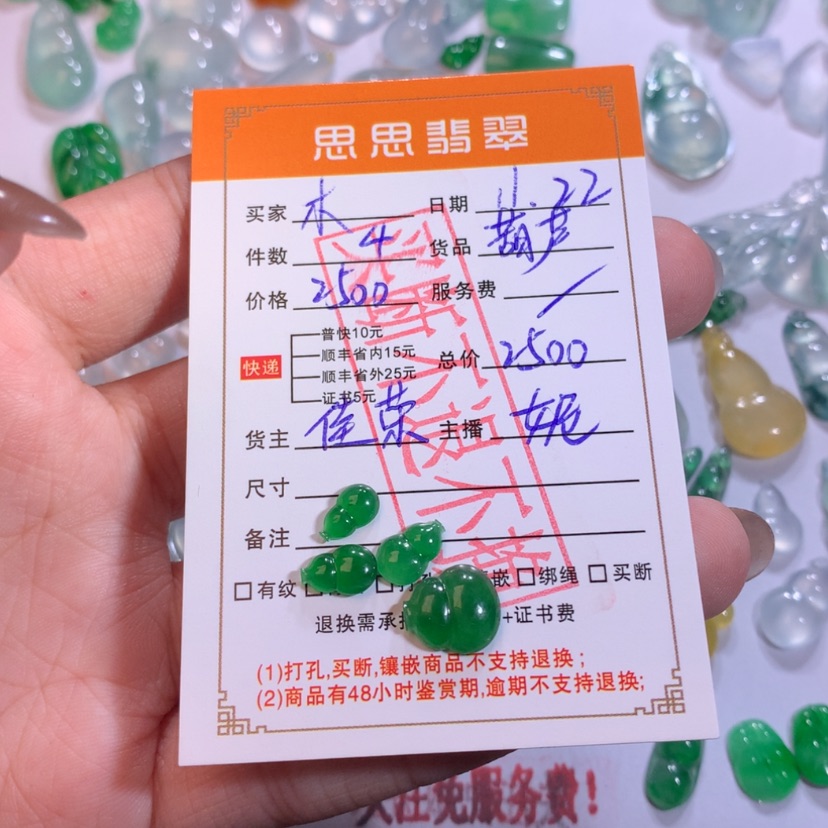 思思翡翠
买家 木 日期 11.22
件数 4 货品 葫芦
价格 2500 服务费 /
快递
普快10元
顺丰省内15元
顺丰省外25元
证书5元
总价 2500
货主 佳荣 主播 妮
尺寸
备注
□有纹 □ □打孔 嵌 □绑绳 □买断
退换需承担 +证书费
(1)打孔,买断,镶嵌商品不支持退换;
(2)商品有48小时鉴赏期,逾期不支持退换;
关注免服务费!